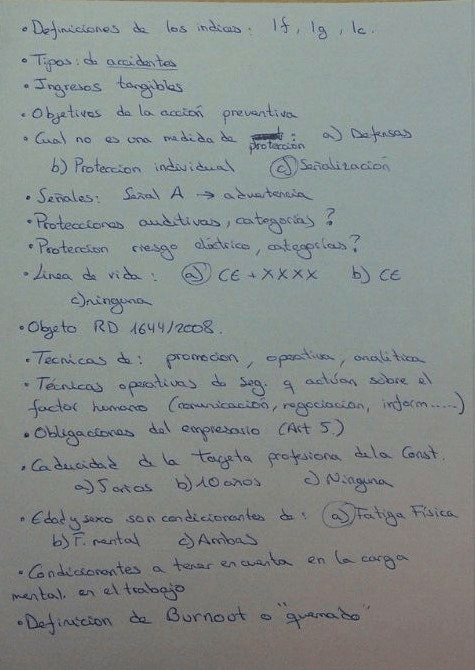 • Definiciones de los indices: If, Ig, Ic.
• Tipos: de accidentes
• Ingresos tangibles
• Objetivos de la acción preventiva
• Cual no es una medida de protección: a) Defensas
b) Proteccion individual c) Señalización
• Señales: Señal A → advertencia
• Protecciones auditivas, categorías?
• Proteccion riesgo eléctrico, categorías?
• Linea de vida: a) CE + XXXX b) CE
c) ninguna
• Objeto RD 1644/2008.
• Tecnicas de: promocion, operativa, analitica
• Técnicas operativas de seg. q actúan sobre el
factor humano (comunicación, negociación, inform.....)
• Obligaciones del empresario (Art 5)
• Caducidad de la Tarjeta profesiona dela Const.
a) 5 años b) 10 años c) Ninguna
• Edad y sexo son condicionantes de: a) Fatiga Física
b) F. mental c) Ambas
• Condicionantes a tener en cuenta en la carga
mental. en el trabajo
• Definicion de Burnoot o "quemado"